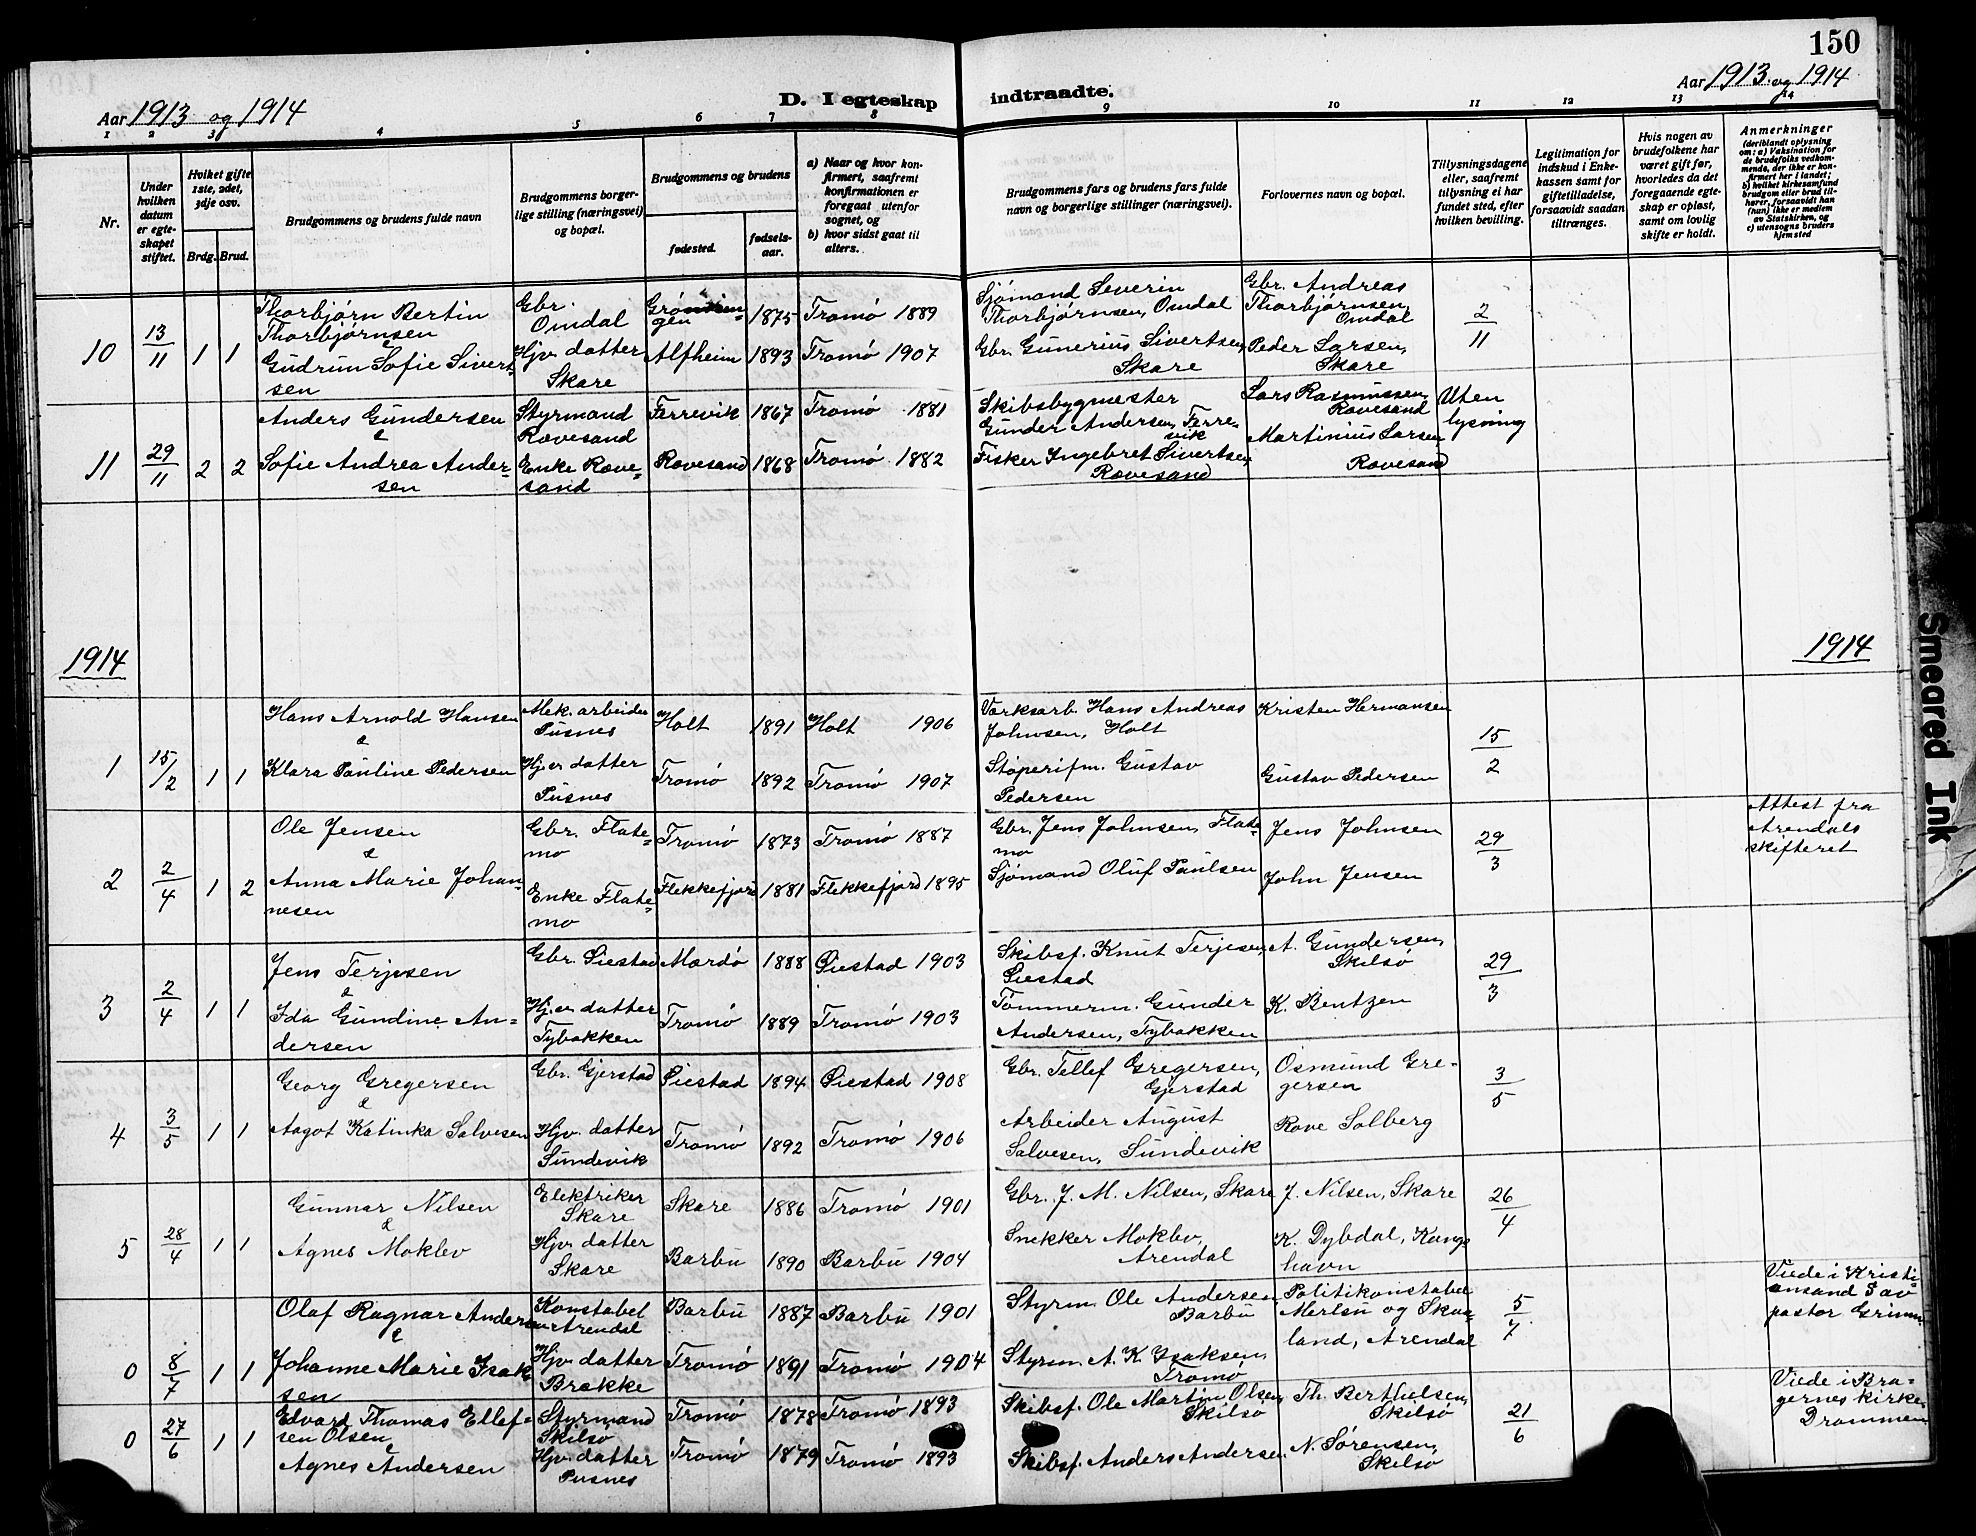 150
Aar 1913 og 1914
D. I egteskap
indtraadte.
Aar 1913 og 1914
1 2 3 4 5 6 7 8 9 10 11 12 13 14
Nr.
Under hvilken datum er egteskapet stiftet.
Hvilket gifte 1ste, 2det, 3dje osv.
Brdg. Brud.
Brudgommens og brudens fulde navn
Brudgommens borgerlige stilling (næringsvei) og bopæl.
Brudgommens og brudens
fødested.
fødselsaar.
a) Naar og hvor konfirmert, saafremt konfirmationen er foregaat utenfor sognet, og
b) hvor sidst gaat til alters.
Brudgommens fars og brudens fars fulde navn og borgerlige stillinger (næringsvei).
Forlovernes navn og bopæl.
Tillysningsdagene eller, saafremt tillysning ei har fundet sted, efter hvilken bevilling.
Legitimation for indskud i Enkekassen samt for giftetilladelse, forsaavidt saadan tiltrænges.
Hvis nogen av brudefolkene har været gift før, hvorledes da det foregaaende egteskap er opløst, samt om lovlig skifte er holdt.
Anmerkninger
(deriblandt oplysning om: a) Vaksination for de brudefolks vedkommende, der ikke er konfirmert her i landet; b) hvilket kirkesamfund brudgom eller brud tilhører, forsaavidt han (hun) ikke er medlem av Statskirken, og c) utensogns bruders hjemsted
10 13/11 1 1
Thorbjørn Bertin Thorbjørnsen & Gbr. Omdal 1875 Tromø 1889 Sjømand Severin Thorbjørnsen, Omdal Gbr. Andreas Thorbjørnsen, Omdal 2/11
Gudrun Sofie Sivertsen Hjv. datter Skare Alfheim 1893 Tromø 1907 Gbr. Gunerius Sivertsen, Skare Peder Larsen, Skare
11 29/11 2 2
Anders Gundersen & Styrmand Rævesand Færrevik 1867 Tromø 1881 Skibsbygmester Gunder Andersen, Færrevik Lars Rasmussen, Rævesand Uten lysning
Sofie Andrea Andersen Enke Rævesand Rævesand 1868 Tromø 1882 Fisker Ingebret Sivertsen Rævesand Martinius Larsen Rævesand
1914 1914
1 15/2 1 1
Hans Arnold Hansen & Mek. arbeider Pusnes Holt 1891 Holt 1906 Værksarb. Hans Andreas Johnsen, Holt Kristen Hermansen 15/2
Klara Pauline Pedersen Hj.v. datter Pusnes Tromø 1892 Tromø 1907 Støperifm. Gustav Pedersen Gustav Pedersen
2 2/4 1 2
Ole Jensen & Gbr. Flatemo Tromø 1873 Tromø 1887 Gbr. Jens Johnsen, Flatemo Jens Johnsen 29/3 Attest fra Arendals skifteret
Anna Marie Johannesen Enke Flatemo Flekkefjord 1881 Flekkefjord 1895 Sjømand Oluf Paulsen John Jensen
3 2/4 1 1
Jens Terjesen & Gbr. Øiestad Mærdø 1888 Øiestad 1903 Skibsf. Knut Terjesen, Øiestad A. Gundersen, Skilsø 29/3
Ida Gundine Andersen Hj.v. datter Tybakken Tromø 1889 Tromø 1903 Tømmerm. Gunder Andersen, Tybakken K. Bentzen
4 3/5 1 1
Georg Gregersen & Gbr. Gjerstad Øiestad 1894 Øiestad 1908 Gbr. Tellef Gregersen, Gjerstad Osmund Gregersen 3/5
Aagot Katinka Salvesen Hjv. datter Sundevik Tromø 1892 Tromø 1906 Arbeider August Salvesen, Sundevik Rove Solberg
5 28/4 1 1
Gunnar Nilsen & Elektriker Skare Skare 1886 Tromø 1901 Gbr. J. M. Nilsen, Skare J. Nilsen, Skare 26/4
Agnes Moklev Hjv. datter Skare Barbu 1890 Barbu 1904 Snekker Moklev, Arendal K. Dybdal, Kongshavn
0 8/7 1 1
Olaf Ragnar Andersen & Konstabel Arendal Barbu 1887 Barbu 1901 Styrm. Ole Andersen Barbu Politikonstabel og land, Arendal 5/7 Viede i Kristiansand S av pastor
Johanne Marie Isaksen Hjv. datter Brække Tromø 1891 Tromø 1904 Styrm. A. K. Isaksen, Tromø
0 27/6 1 1
Edvard Thomas Ellefsen Olsen & Styrmand Skilsø Tromø 1878 Tromø 1893 Skibsf. Ole Martin Olsen, Skilsø Th. Berthelsen, Skilsø 21/6 Viede i Bragernes kirke, Drammen
Agnes Andersen Hjv. datter Pusnes Tromø 1879 Tromø 1893 Skibsf. Anders Andersen N. Sørensen, Skilsø
Smeared Ink